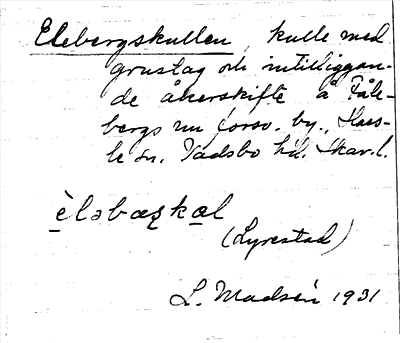 Elebergskullen, kulle med
grustag och intilliggan-
de åkerskifte å Fåle-
bergs nu försv. by., Has-
le sn. Vadsbo hd. Skar.l.
èləbæskæl
(Lyrestad)
L. Madsén 1931